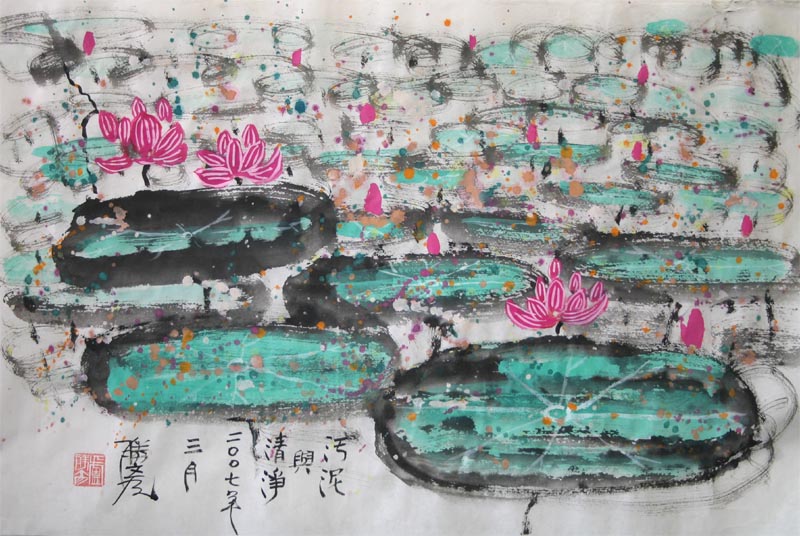 汚泥
與
清淨
二〇〇七年
三月